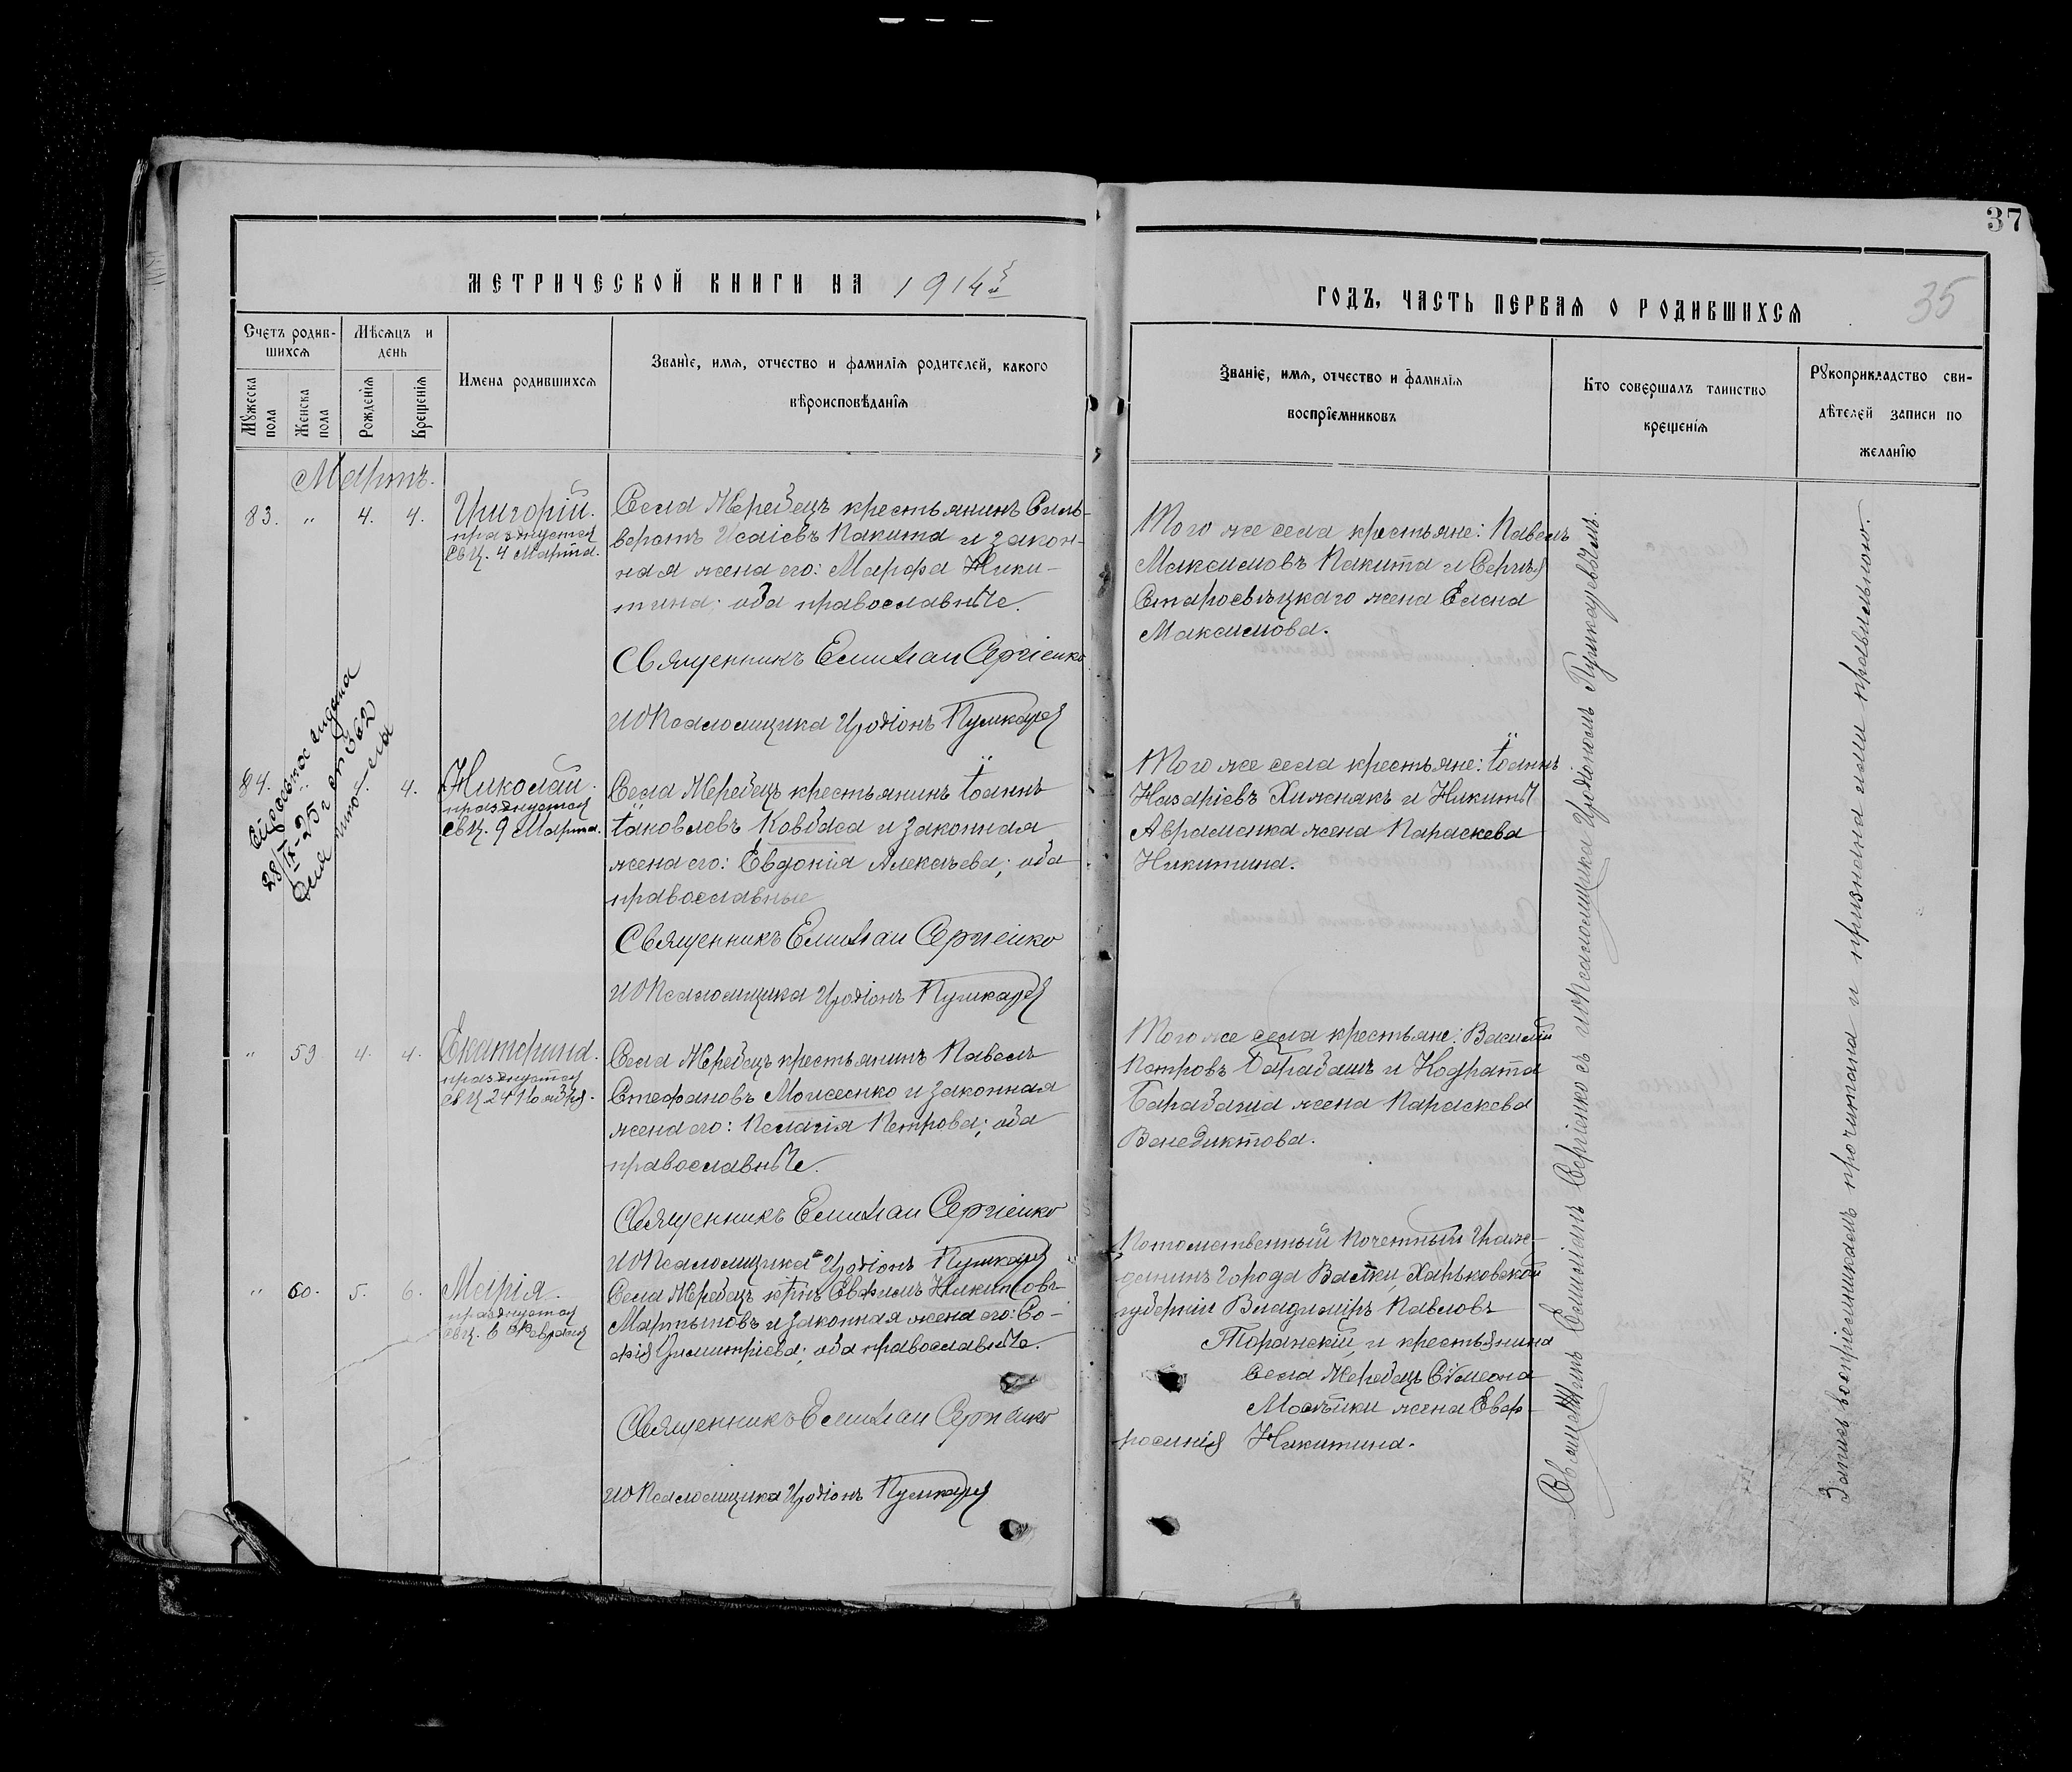 37
35
МЕТРИЧЕСКОЙ КНИГИ НА 1914й
ГОДЪ, ЧАСТЬ ПЕРВАЯ О РОДИВШИХСЯ
Счетъ родив-
шихся
Мужеска пола
Женска пола
Мѣсяцъ и
день
Рожденія
Крещенія
Имена родившихся
Званіе, имя, отчество и фамилія родителей, какого
вѣроисповѣданія
Званіе, имя, отчество и фамилія
воспріємниковъ
Кто совершалъ таинство
крещенія
Рукоприкладство сви-
дѣтелей записи по
желанію
Мартъ.
83. " 4. 4.
Григорій.
празднуется
св. ц. 4 Марта.
Села Мерефецъ крестьянинъ Силь-
верстъ Исаіевъ Пакита и закон-
ная жена его: Марфа Ники-
тина; оба православные.
Священникъ Емиліан Сергіенко
ИО Псаломщика Иродіонъ Пушкарев
Того же села крестьяне: Павелъ
Максимовъ Пакита и Сергія
Старосвѣцкаго жена Елена
Максимова.
84. " 4.
28/IX-25 г
Николай.
празднуется
св. ц. 9 Марта.
крестьянинъ Іоаннъ
Іаковлевъ Ковбаса и законная
жена его: Евдокія Алексѣева; оба
православные
Священникъ Емиліан Сергіенко
ИО Псаломщика Иродіонъ Пушкарев
Того же села крестьяне: Іоаннъ
Назаріевъ Хижнякъ и Никиты
Авраменка жена Параскева
Никитина.
" 59 4. 4.
Екатерина.
празднуется
св. ц. 24 Ноября.
крестьянинъ Павелъ
Стефановъ Моисеенко и законная
жена его: Пелагія Петрова; оба
православные.
Священникъ Емиліан Сергіенко
ИО Псаломщика Иродіонъ Пушкарев
Того же села крестьяне: Василій
Петровъ Барабашъ и Кодрата
Барабаша жена Параскева
Венедиктова.
" 60. 5. 6.
Марія.
празднуется
св. ц. 6 Февраля
Евфимъ Никитовъ
Мартыновъ и законная жена его: Со-
фія Димитріева; оба православные.
Священникъ Емиліан Сергіенко
ИО Псаломщика Иродіонъ Пушкарев
Потомственный почетный граж-
данинъ города Валки, Харьковской
губерніи Владиміръ Павловъ
и крестьянина
Села Сѵмеона
жена Евф-
росинія Никитина.
Священникъ Емиліанъ Сергіенко съ ИО Псаломщика Иродіономъ Пушкаревымъ.
Запись воспріемникамъ прочитана и признана ими правильною.